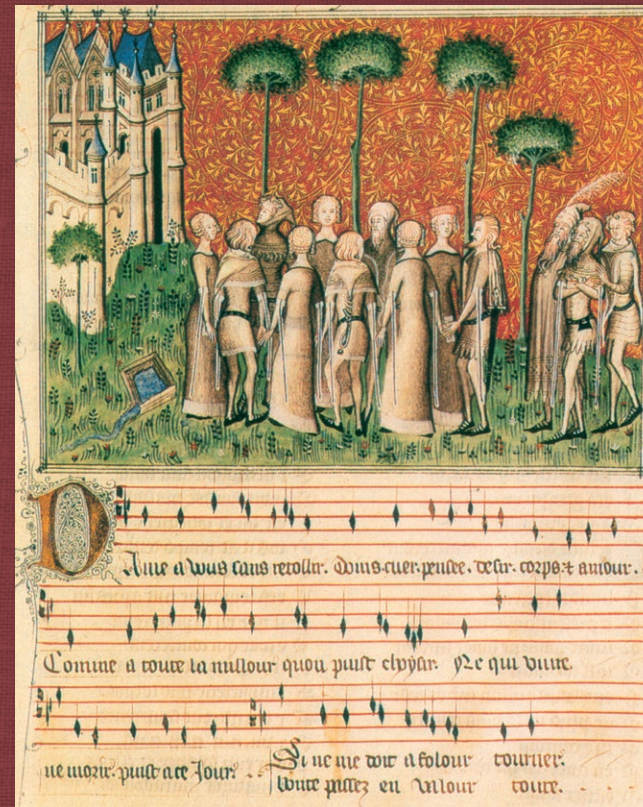 Dame a vous sans retollir. Doins cuer. pensee. desir. corps. & amour.
Comme a toute la millour quon puist choysir. Ne qui vivre.
ne morir. puist a ce Jour.
Si ne me doit a folour tourner.
bonte passez en valour toute.